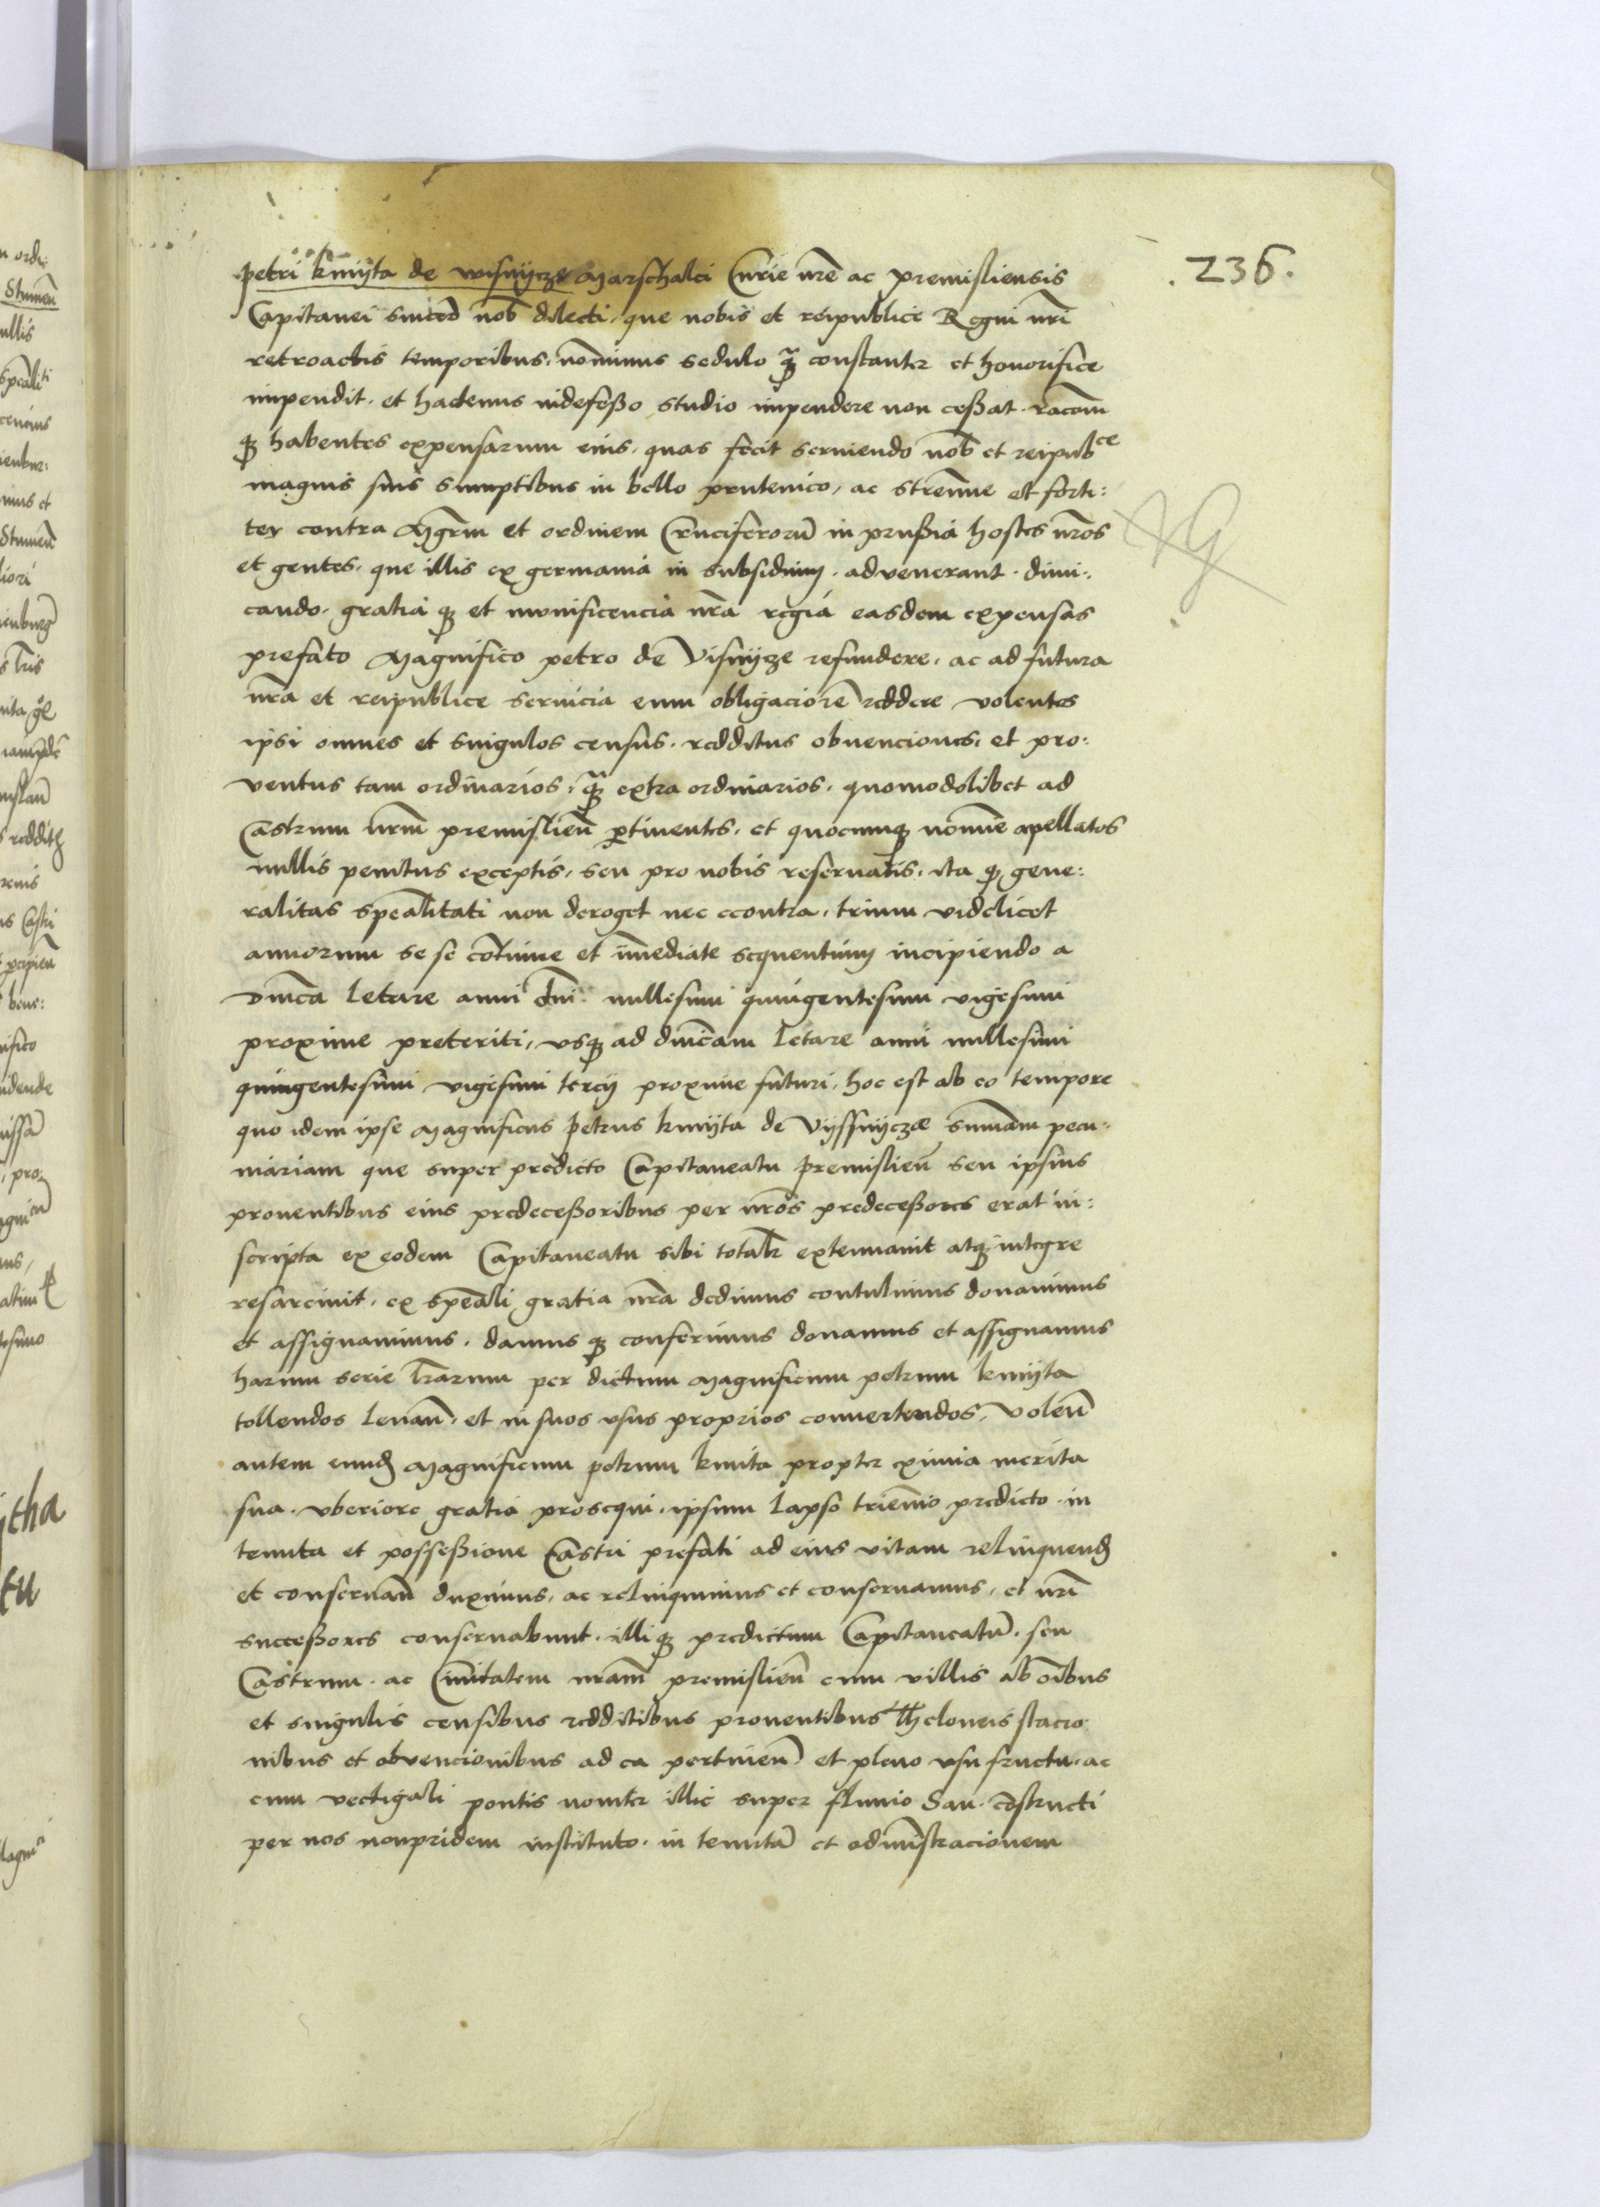 236.
petri kmijta de wisnijcze Marschalci Curie nre ac premisliensis
Capitanei sincere nob dilecti, que nobis et reipublice Regni nri
retroactis temporibus, nominus sedulo q̃ȝ constanter et honorifice
impendit. et hactenus indefesso studio impendere non cessat. racom
qȝ habentes expensarum eius, quas fecit seruiendo nob et reipubce
magnis suis sumptibus in bello prutenico, ac strenue et forti:
ter contra Mgrm et ordinem Cruciferorū in prussia hostes nros
et gentes, que illis ex germania in subsidium, advenerant. dimi:
cando, gratia qȝ et munificencia nra regia easdem expensas
prefato Magnifico petro de Visnijcze refundere, ac ad futura
nra et reipublice servicia eum obligaciorē reddere volentes
ipsi omnes et singulos census, redditus obuenciones, et pro:
ventus tam ordinarios, q̃ȝ extra ordinarios, quomodolibet ad
Castrum nrm premislien̄ ptinentes, et quocumqȝ nomine apellatos
nullis penitus exceptis, seu pro nobis reseruatis, ita qȝ gene:
ralitas spealitati non deroget nec econtra, trium videlicet
annorum se se cōtinue et īmediate sequentium incipiendo a
dnica letare anni dni millesimi quingentesimi vigesimi
proxime preteriti, vsqȝ ad dnicam letare anni millesimi
quingentesimi vigesimi tercij proxime futuri, hoc est ab eo tempore
quo idem ipse Magnificus petrus kmijta de Vijssnijcze summam pecu:
niariam que super predicto Capitaneatu premislien̄ seu ipsius
prouentibus eius predecessoribus per nros predecessores erat in:
scripta ex eodem Capitaneatu sibi totalr extenuauit atqȝ integre
resarciuit, ex speali gratia nra dedimus contulimus donauimus
et assignauimus, damus qȝ conferimus donamus et assignamus
harum serie lrarum per dictum Magnificum petrum kmijta
tollendos leuan̄, et in suos vsus proprios conuertendos, volen̄
autem eund Magnificum petrum kmita propter eximia merita
sua, vberiore gratia prosequi, ipsum lapso triennio predicto, in
tenuta et possessione Castri prefati ad eius vitam relinquend
et conseruan̄ duximus, ac relinquimus et conseruamus, et nri
successores conseruabunt, illi qȝ predictum Capitaneatū, seu
Castrum, ac Ciuitatem nram premislien̄ cum villis ab oībus
et singulis censibus redditibus prouentibus theloneis stacio
nibus et obvencionibus ad ea pertinen̄ et pleno vsu fructu, ac
cum vectigali pontis nouiter illic super fluuio San, cōstructi
per nos nonpridem instituto, in tenutā et administracionem